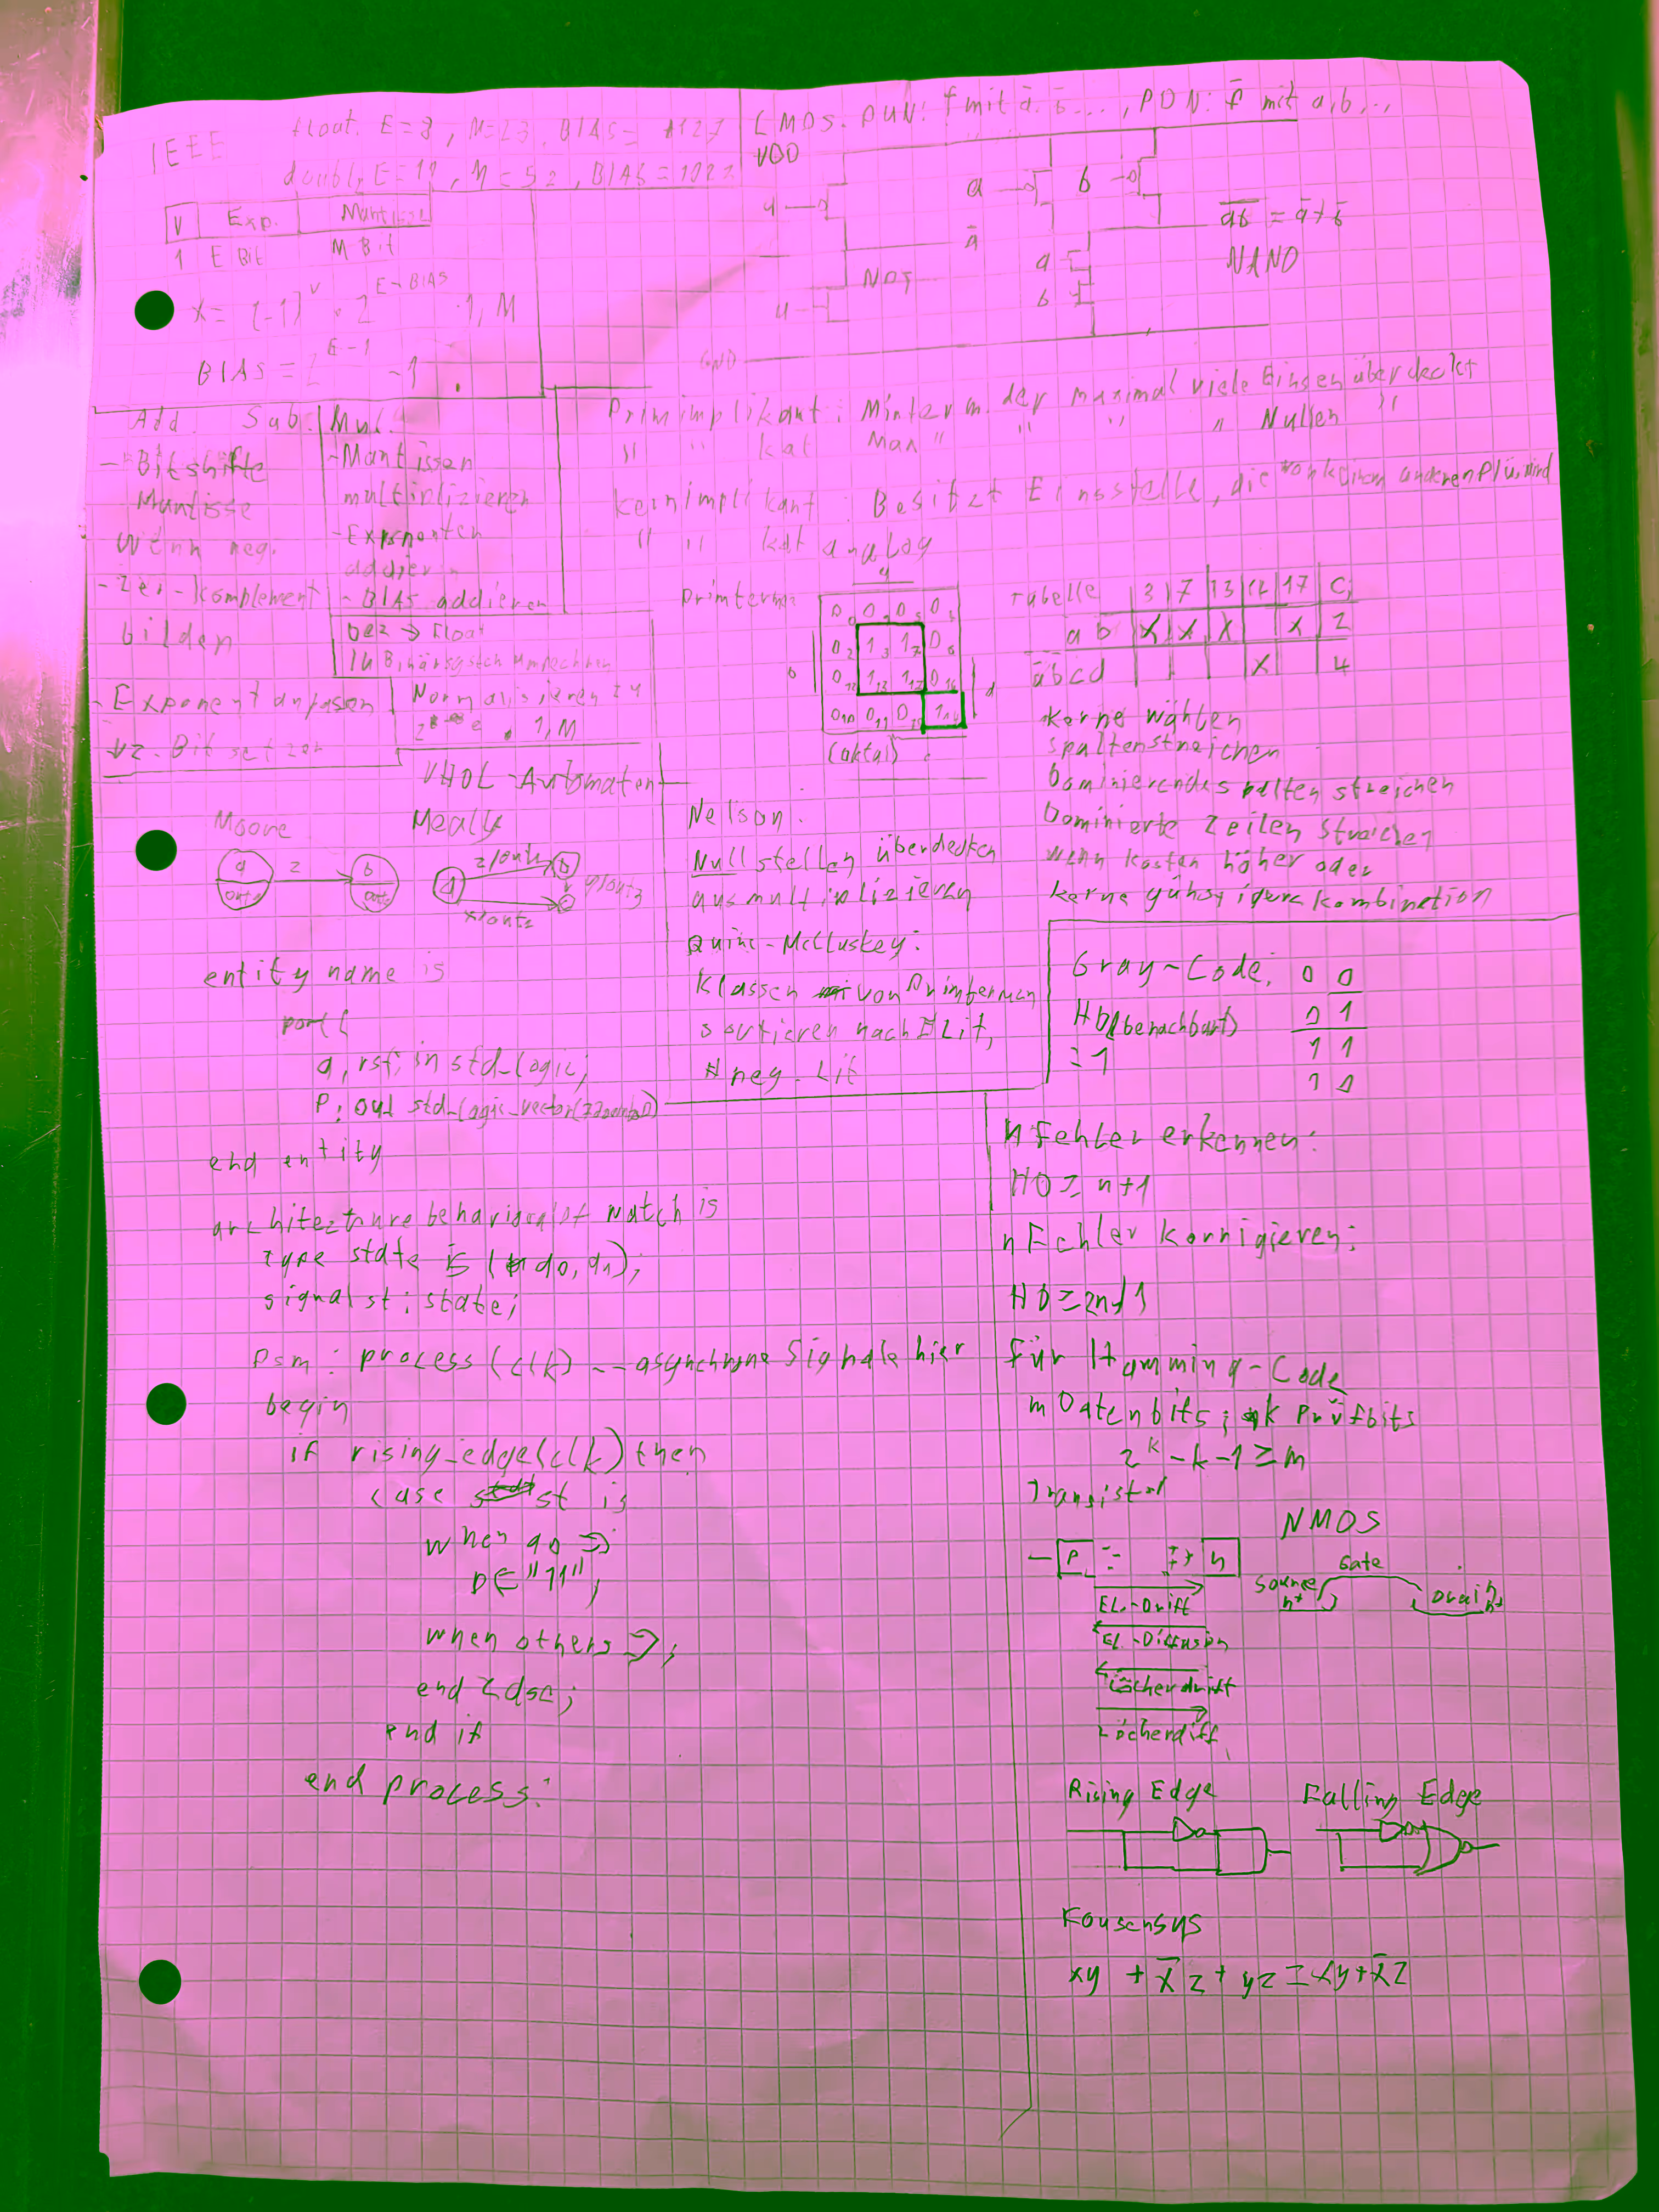 IEEE
float: E=8, M=23, BIAS=127
double, E=11, M=52, BIAS=1023
V Exp. Mantisse
1 E Bit M Bit
x = (-1)^v · 2^(E-BIAS) · 1,M
BIAS = 2^(E-1) - 1
CMOS. PUN: f mit ā, b̄ ..., PDN: f̄ mit a,b,..
VDD
a
a b
ā
NOT
a
a
b
GND
\overline{ab} = ā + b̄
NAND
Add. Sub.
- Bitshifte
Mantisse
wenn neg.
- 2er-Komplement
bilden
- Exponent anpassen
- Vz.-Bit setzen
Mul.
- Mantissen
multiplizieren
- Exponenten
addieren
- BIAS addieren
Dez → Float
In Binärsystem umrechnen
Normalisieren zu
1,M
Primimplikant: Minterm der maximal viele Einsen überdeckt
" " kat Max " " " " Nullen "
Kernimplikant: Besitzt Einsstelle, die von keinem anderen PI üd. wird
" " kat analog
Primterme
a
b
d
0 0 0 0
0 1 1 0
0 1 1 0
0 0 0 1
(oktal)
Tabelle 3 7 13 12 17 C
ab X X X X 2
ābcd X 4
Kerne wählen
Spalten streichen
Dominierende Spalten streichen
Dominierte Zeilen streichen
wenn Kosten höher oder
keine günstigere Kombination
VHDL-Automaten
Moore Mealy
a z b
z/out1 b
a y/out3
x/out2 c
entity name is
port(
a, rst: in std_logic;
p: out std_logic_vector(7 downto 0)
end entity
architecture behavioral of match is
type state is (q0, q1);
signal st: state;
fsm: process(clk) -- asynchrone Signale hier
begin
if rising_edge(clk) then
case st is
when q0 =>
p<="11";
when others =>;
end case;
end if
end process:
Nelson:
Nullstellen überdecken
ausmultiplizieren
Quine-McCluskey:
Klassen von Primtermen
sortieren nach #Lit,
#neg. Lit
Gray-Code: 0 0
HD(benachbart) 0 1
=1 1 1
1 0
n Fehler erkennen:
HD ≥ n+1
n Fehler korrigieren:
HD ≥ 2n+1
Für Hamming-Code
m Datenbits; k Prüfbits
2^k - k - 1 ≥ m
Transistor
p n
El.-Drift
El.-Diffusion
Löcherdrift
Löcherdiff.
NMOS
Gate
Source Drain
n+ n+
Rising Edge Falling Edge
Konsensus
xy + x̄z + yz = xy + x̄z